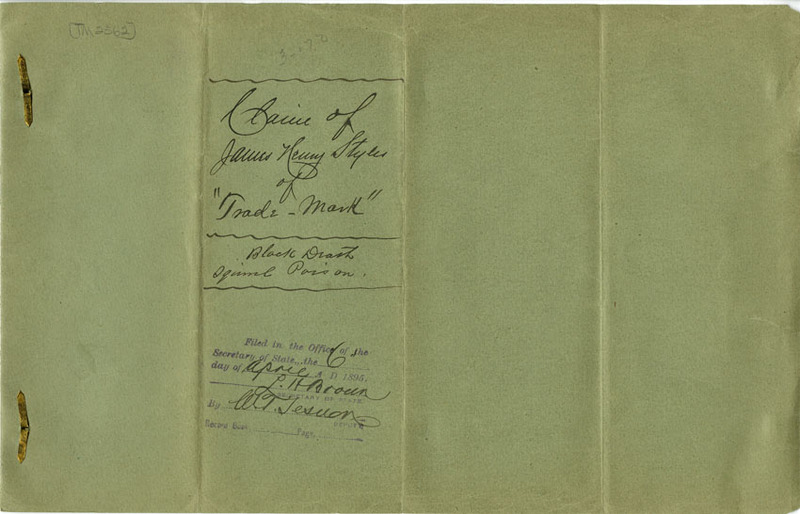 [TM 2362]
Claim of
James Henry Styles
of
"Trade-Mark"
Black Death
Squirrel Poison.
Filed in the Office of the
Secretary of State, the 6
day of April A.D. 1895.
L. H. Brown
SECRETARY OF STATE
By W. T. Sesnon
DEPUTY
Record Book Page